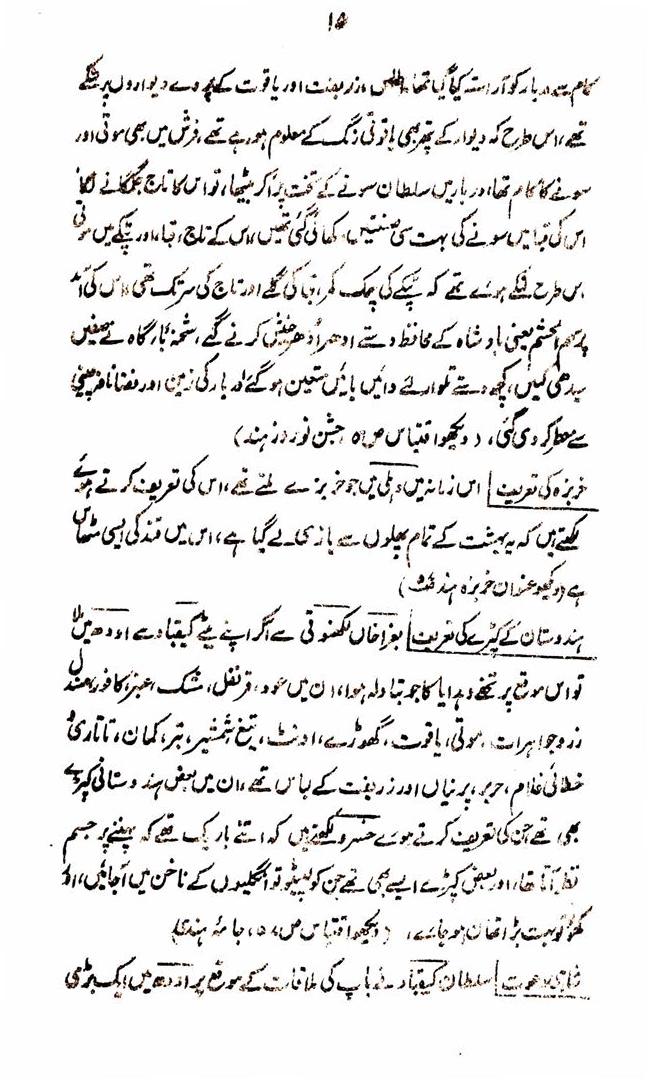 ۱۵
کام سے دربار کو آراستہ کیا گیا تھا، اطلس، زربفت اور یاقوت کے پردے دیواروں پر ٹنگے
تھے، اس طرح کہ دیوار کے پتھر بھی یاقوتی رنگ کے معلوم ہو رہے تھے، فرش میں بھی موتی اور
سونے کا کام تھا، دربار میں سلطان سونے کے تخت پر آکر بیٹھا، تو اس کا تاج جگمگانے لگا
اس کی قبا میں سونے کی بہت سی صنعتیں دکھائی گئی تھیں، اس کے تاج، قبا، اور پٹکے میں موتی
اس طرح لٹکے ہوئے تھے کہ پٹکے کی چمک کمر، قبا کی گلے اور تاج کی سر تک تھی، اس کی آمد
پر سہم الحشم یعنی بادشاہ کے محافظ دستے ادھر اُدھر جنبش کرنے لگے، شحنۂ بارگاہ نے صفیں
سیدھی کیں، کچھ دستے تلوار لئے دائیں بائیں متعین ہو گئے، دربار کی زمین اور فضا نافۂ چینی
سے معطر کر دی گئی، (دیکھو اقتباس ص ۵۱ جشن نوروز ہند)
خربزہ کی تعریف اس زمانہ میں دہلی میں جو خربزے ملتے تھے، اس کی تعریف کرتے ہوئے
لکھتے ہیں کہ یہ بہشت کے تمام پھلوں سے بازی لے گیا ہے، اس میں قند کی ایسی مٹھاس
ہے (دیکھو عنوان خربزہ ہند)
ہندوستان کے کپڑے کی تعریف بغرا خاں لکھنوتی سے آکر اپنے بیٹے کیقباد سے اودھ میں ملا
تو اس موقع پر تحفے و ہدایا کا جو تبادلہ ہوا، ان میں عود، قرنفل، مشک، عنبر، کافور، صندل
زر و جواہرات، موتی، یاقوت، گھوڑے، اونٹ، تیغ، شمشیر، تبر، کمان، تاتاری و
خطائی غلام، حریر، پرنیاں اور زربفت کے لباس تھے، ان میں بعض ہندوستانی کپڑے
بھی تھے جن کی تعریف کرتے ہوئے خسرو لکھتے ہیں کہ اتنے باریک تھے کہ پہننے پر جسم
نظر آتا تھا، اور بعض کپڑے ایسے بھی تھے جن کو لپیٹو تو انگلیوں کے ناخن میں آجائیں، اور
کھولو تو بہت بڑا تھان ہو جائے، (دیکھو اقتباس ص ۵۷، جامۂ ہندی)
شاہی دعوت سلطان کیقباد نے باپ کی ملاقات کے موقع پر اودھ میں ایک بڑی